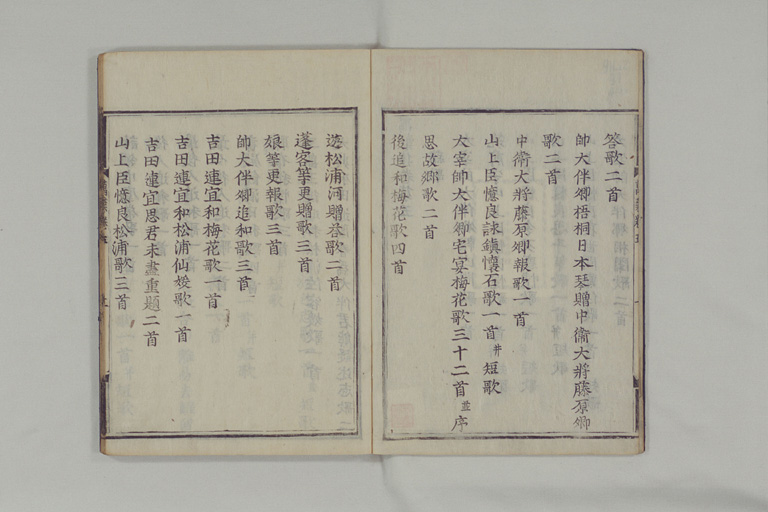 答歌二首
帥大伴卿梧桐日本琴贈中衛大將藤原卿
歌二首
中衛大將藤原卿報歌一首
山上臣憶良詠鎮懷石歌一首 并短歌
大宰帥大伴卿宅宴梅花歌三十二首 並序
思故郷歌二首
後追和梅花歌四首
遊松浦河贈答歌二首
蓬客等更贈歌三首
娘等更報歌三首
帥大伴卿追和歌三首
吉田連宜和梅花歌一首
吉田連宜和松浦仙媛歌一首
吉田連宜思君未盡重題二首
山上臣憶良松浦歌三首